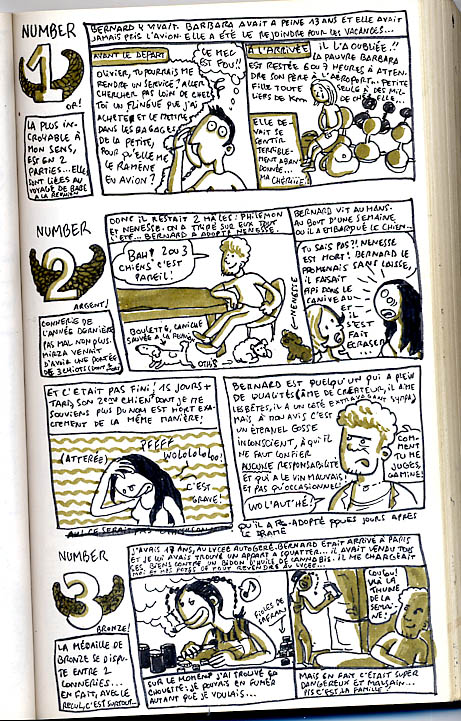 NUMBER
1
OR!
LA PLUS IN-
CROYABLE À
MON SENS,
EST EN 2
PARTIES... ELLES
SONT LIÉES AU
VOYAGE DE BABE
A LA RÉUNION
BERNARD Y VIVAIT. BARBARA AVAIT A PEINE 13 ANS ET ELLE AVAIT
JAMAIS PRIS L'AVION. ELLE A ÉTÉ LE REJOINDRE POUR LES VACANCES...
AVANT LE DEPART
OLIVIER, TU POURRAIS ME
RENDRE UN SERVICE? ALLER
CHERCHER PAS LOIN DE CHEZ
TOI UN FLINGUE QUE J'AI
ACHETÉ ET LE METTRE
DANS LES BAGAGES
DE LA PETITE,
POUR QU'ELLE ME
LE RAMÈNE
EN AVION?
CE MEC
EST FOU!!
A L'ARRIVÉE
IL L'A OUBLIÉE!!
LA PAUVRE BARBARA
EST RESTÉE 6 OU 7 HEURES À ATTEN-
DRE SON PÈRE À L'AEROPORT.. PETITE
FILLE TOUTE SEULE À DES MIL-
LIERS DE Km DE CHEZ ELLE...
ELLE DE-
VAIT SE
SENTIR
TERRIBLE-
MENT ABAN-
DONNÉE...
MA CHÉRIE!!
NUMBER
2
ARGENT!
CONNERIE DE
L'ANNÉE DERNIÈRE
PAS MAL NON PLUS.
MIRZA VENAIT
D'AVOIR UNE PORTÉE
DE 3 CHIOTS
DONC IL RESTAIT 2 MALES: PHILÉMON
ET NENESSE. ON A TIRÉ SUR EUX TOUT
L'ÉTÉ... BERNARD A ADOPTÉ NENESSE.
BAH! 2 OU 3
CHIENS C'EST
PAREIL!
BOULETTE, CANICHE
SAUVÉE A LA RÉUNION
OTHIS
NENESSE
BERNARD VIT AU MANS.
AU BOUT D'UNE SEMAINE
OU IL A EMBARQUÉ LE CHIEN..
TU SAIS PAS?! NENESSE
EST MORT! BERNARD LE
PROMENAIS SANS LAISSE,
IL FAISAIT
PIPI DANS LE
CANIVEAU
ET IL
S'EST
FAIT
ECRASER...
ET C'ÉTAIT PAS FINI! 15 JOURS +
TARD, SON 2ème CHIEN DONT JE ME
SOUVIENS PLUS DU NOM EST MORT EXA-
CTEMENT DE LA MÊME MANIÈRE!
(ATTERÉE)
PFFFF
WOLOLOLOOO!
C'EST
GRAVE!
BERNARD EST QUELQU'UN QUI A PLEIN
DE QUALITÉS (ÂME DE CRÉATEUR, IL AIME
LES BÊTES, IL A UN COTÉ EXTRAVAGANT SYMPA)
MAIS À MON AVIS C'EST
UN ÉTERNEL GOSSE
INCONSCIENT, À QUI IL
NE FAUT CONFIER
AUCUNE RESPONSABILITÉ
ET QUI A LE VIN MAUVAIS!
ET PAS QU'OCCASIONNEL!
WO L'AUT'HÉ!
COM-
MENT
TU ME
JUGES
GAMINE!
QU'IL A RÉ-ADOPTÉ JOURS APRÈS
LE DRAME
NUMBER
3
BRONZE!
LA MÉDAILLE DE
BRONZE SE DISPU-
TE ENTRE 2
CONNERIES...
EN FAIT, AVEC LE
RECUL, C'EST SURTOUT...
J'AVAIS 17 ANS, AU LYCÉE AUTOGÉRÉ. BERNARD ÉTAIT ARRIVÉ A PARIS
ET JE LUI AVAIS TROUVÉ UN APPART A SQUATTER... IL AVAIT VENDU TOUS
SES BIENS CONTRE UN BIDON D'HUILE DE CANNABIS. IL ME CHARGEAIT
MOI ET MES POTES DE TOUT REVENDRE AU LYCÉE...
FIOLES DE
SAFRAN
SUR LE MOMENT J'AI TROUVÉ ÇA
CHOUETTE: JE POUVAIS EN FUMER
AUTANT QUE JE VOULAIS...
COUCOU!
V'LÀ LA
THUNE
DE LA
SEMAI-
NE!
MAIS EN FAIT C'ÉTAIT SUPER
DANGEREUX ET MALSAIN...
PIS C'EST LA FAMILLE!!